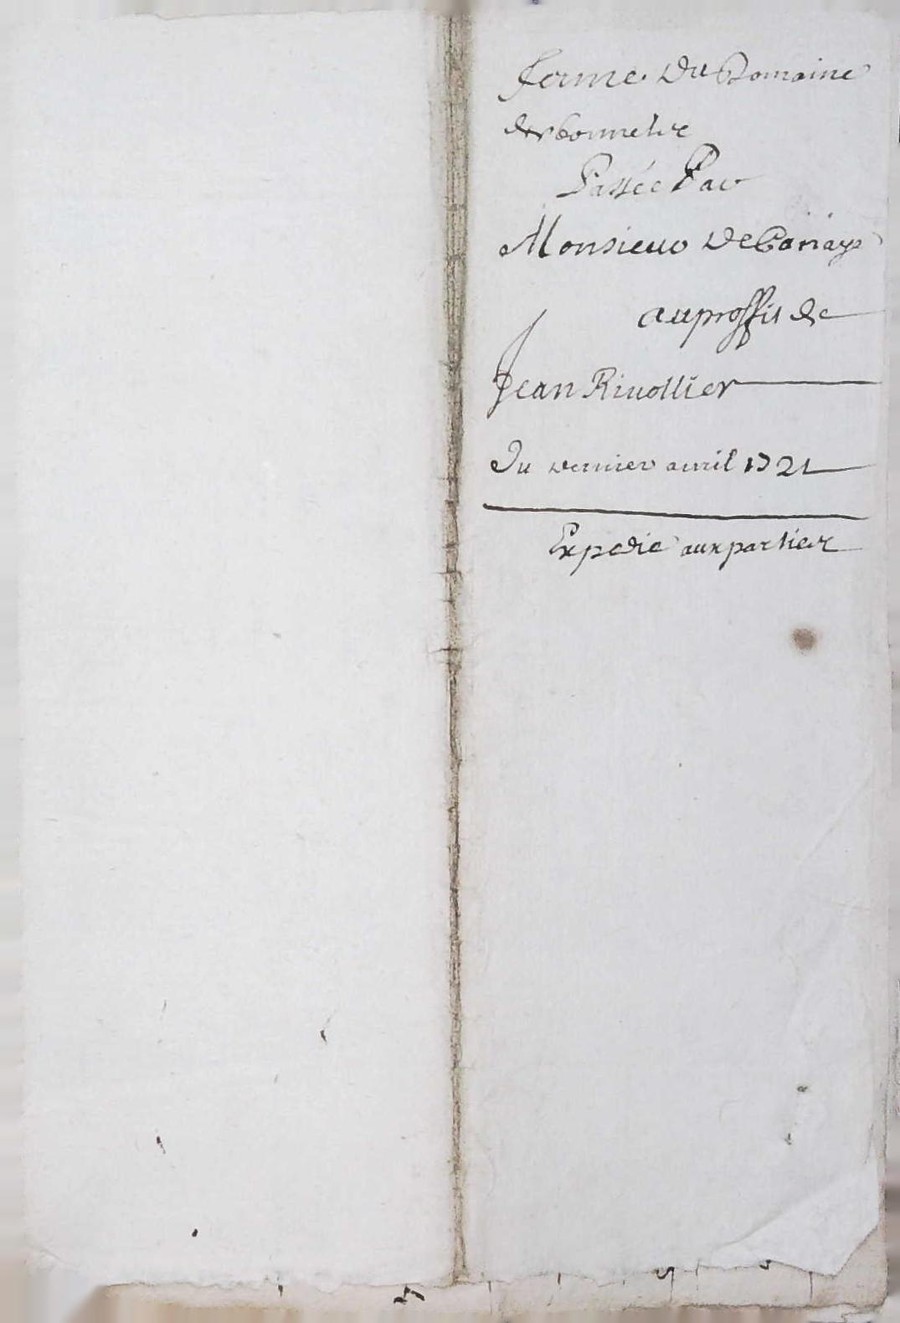 ferme du Domaine
des bonnetie
Passée Par
Monsieur de
au proffit de
Jean Riuollier
Du dernier auril 1721
Expedié aux parties